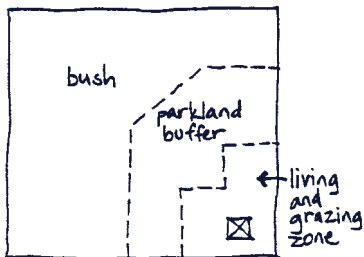 bush
parkland
buffer
living
and
grazing
zone